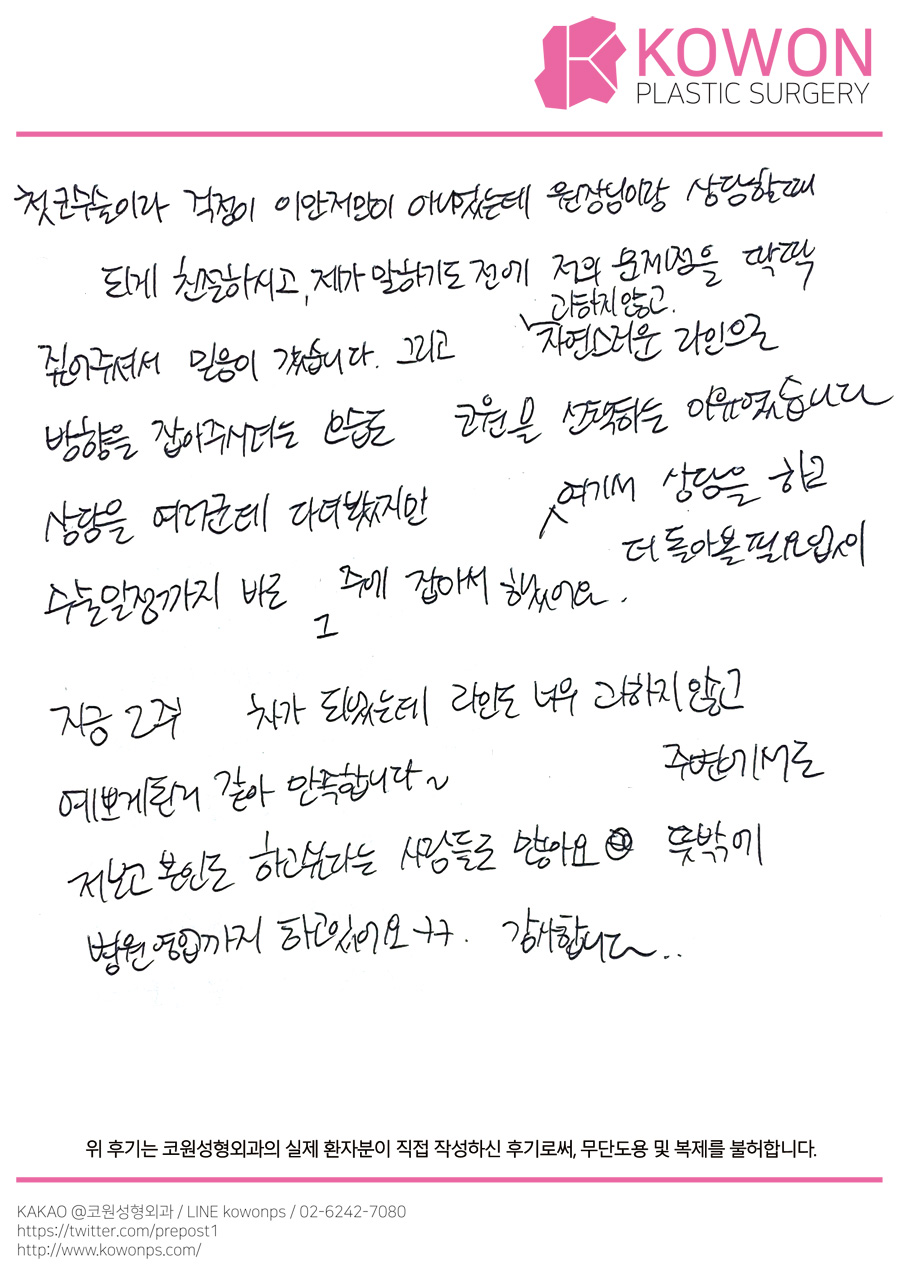 KOWON
PLASTIC SURGERY
첫코수술이라 걱정이 이만저만이 아니었는데 원장님이랑 상담할때
되게 친절하시고, 제가 말하기도 전에 저의 문제점을 딱딱
과하지않고.
짚어주셔서 믿음이 갔습니다. 그리고 자연스러운 라인으로
방향을 잡아주시려는 모습도 코원을 선택하는 이유였습니다
상담을 여러군데 다녀봤지만 여기서 상담을 하고
더 돌아볼필요없이
수술일정까지 바로 그 주에 잡아서 했어요.
지금 2주 차가 되었는데 라인도 너무 과하지않고
예쁘게된거 같아 만족합니다~ 주변에서도
저보고 본인도 하고싶다는 사람들도 많아요 뜻밖에
병원영업까지 하고있어요ㅋㅋ. 감사합니다..
위 후기는 코원성형외과의 실제 환자분이 직접 작성하신 후기로써, 무단도용 및 복제를 불허합니다.
KAKAO @코원성형외과 / LINE kowonps / 02-6242-7080
https://twitter.com/prepost1
http://www.kowonps.com/